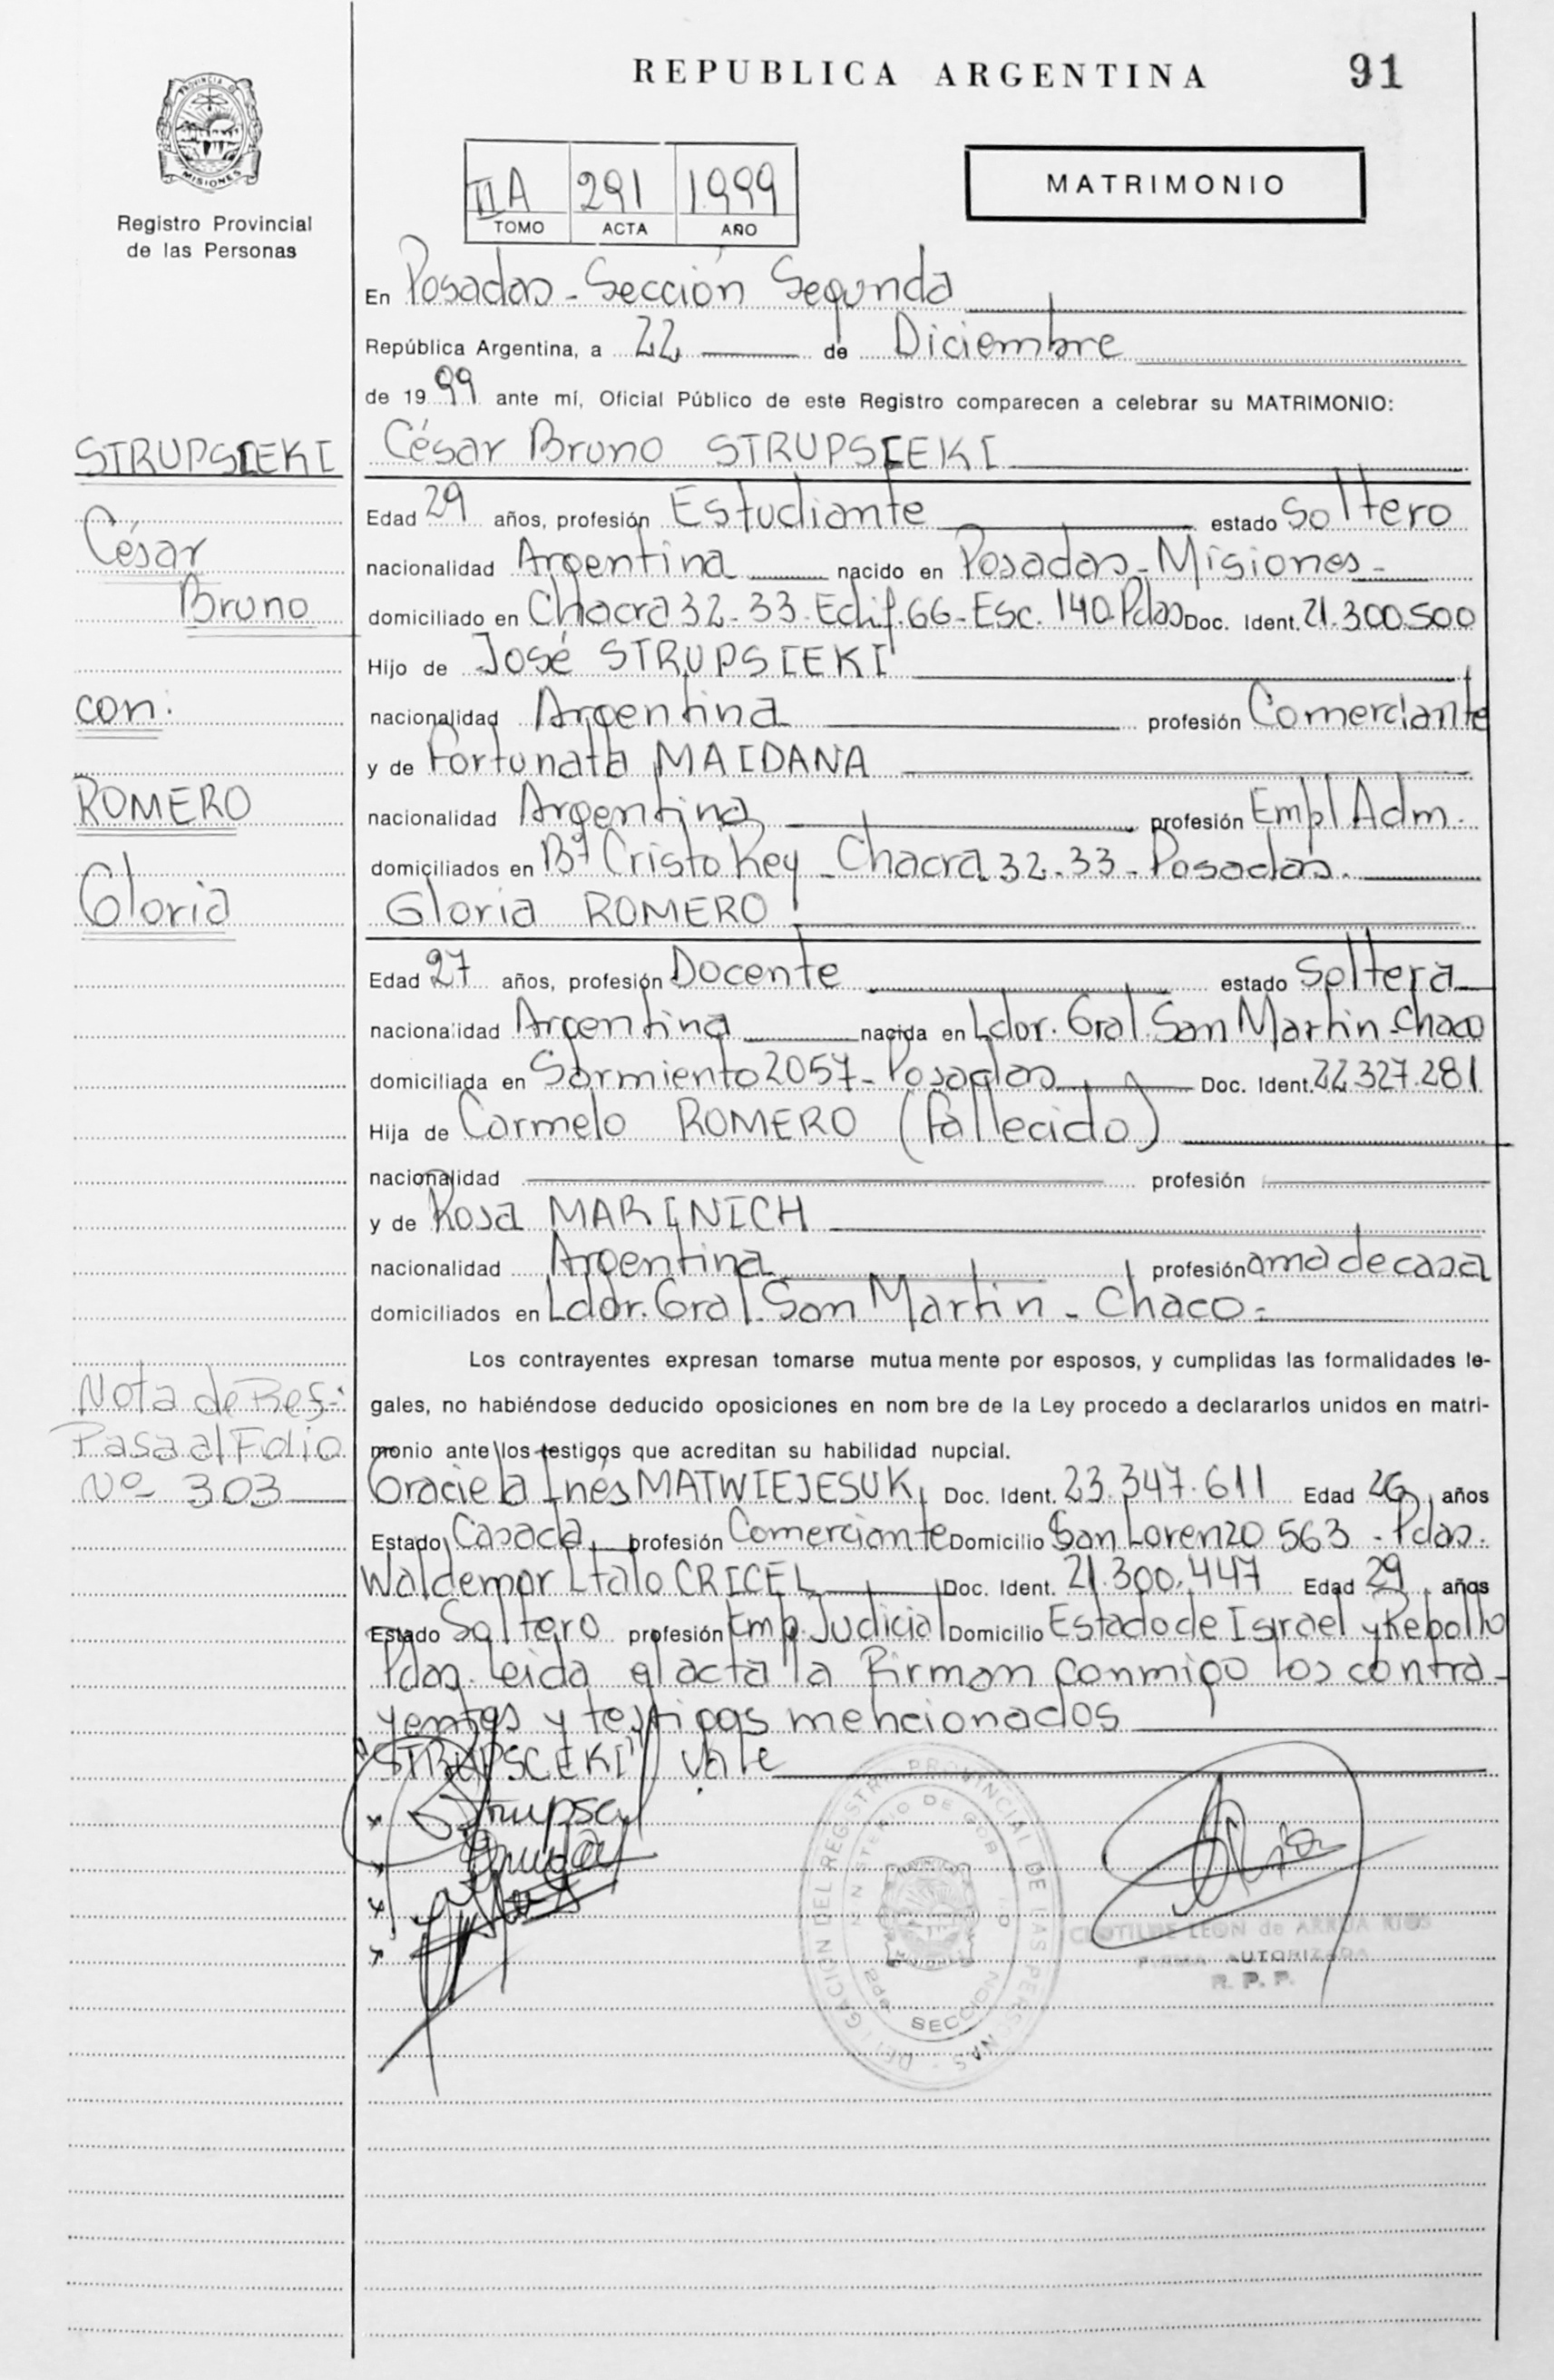 REPUBLICA ARGENTINA
91
PROVINCIA D
MISIONES
Registro Provincial
de las Personas
II A 291 1999
TOMO ACTA AÑO
MATRIMONIO
En Posadas - Sección Segunda
República Argentina, a 22 de Diciembre
de 1999 ante mí, Oficial Público de este Registro comparecen a celebrar su MATRIMONIO:
STRUPSCEKI
César
Bruno
con:
ROMERO
Gloria
César Bruno STRUPSCEKI
Edad 29 años, profesión Estudiante estado Soltero
nacionalidad Argentina nacido en Posadas - Misiones -
domiciliado en Chacra 32-33-Edif.66-Esc. 140-Pdas Doc. Ident. 21.300.500
Hijo de José STRUPSIEKI
nacionalidad Argentina profesión Comerciante
y de Fortunata MAIDANA
nacionalidad Argentina profesión Empl Adm.
domiciliados en Bº Cristo Rey - Chacra 32-33 - Posadas.
Gloria ROMERO
Edad 27 años, profesión Docente estado Soltera
nacionalidad Argentina nacida en Ldor. Gral. San Martin - Chaco
domiciliada en Sarmiento 2057 - Posadas Doc. Ident. 22.327.281
Hija de Carmelo ROMERO (fallecido)
nacionalidad profesión
y de Rosa MARINICH
nacionalidad Argentina profesión ama de casa
domiciliados en Lddr. Gral. San Martin - Chaco -
Los contrayentes expresan tomarse mutua mente por esposos, y cumplidas las formalidades le-
gales, no habiéndose deducido oposiciones en nom bre de la Ley procedo a declararlos unidos en matri-
monio ante los testigos que acreditan su habilidad nupcial.
Nota de Ref.:
Pasa al Folio
Nº 303
Graciela Inés MATWIEJESUK Doc. Ident. 23.347.611 Edad 26 años
Estado Casada profesión Comerciante Domicilio San Lorenzo 563 - Pdas.
Waldemar Italo CRICEL Doc. Ident. 21.300.447 Edad 29 años
Estado Soltero profesión Emp. Judicial Domicilio Estado de Israel y Rebollo
Pdas. Leida el acta la firman conmigo los contra-
yentes y testigos mencionados
"STRUPSCEKI" Vale
DELEGACION DEL REGISTRO PROVINCIAL DE LAS PERSONAS
MINISTERIO DE GOB
SECCION
CLOTILDE LEON de ARRUA RIOS
FIRMA AUTORIZADA
R. P. P.